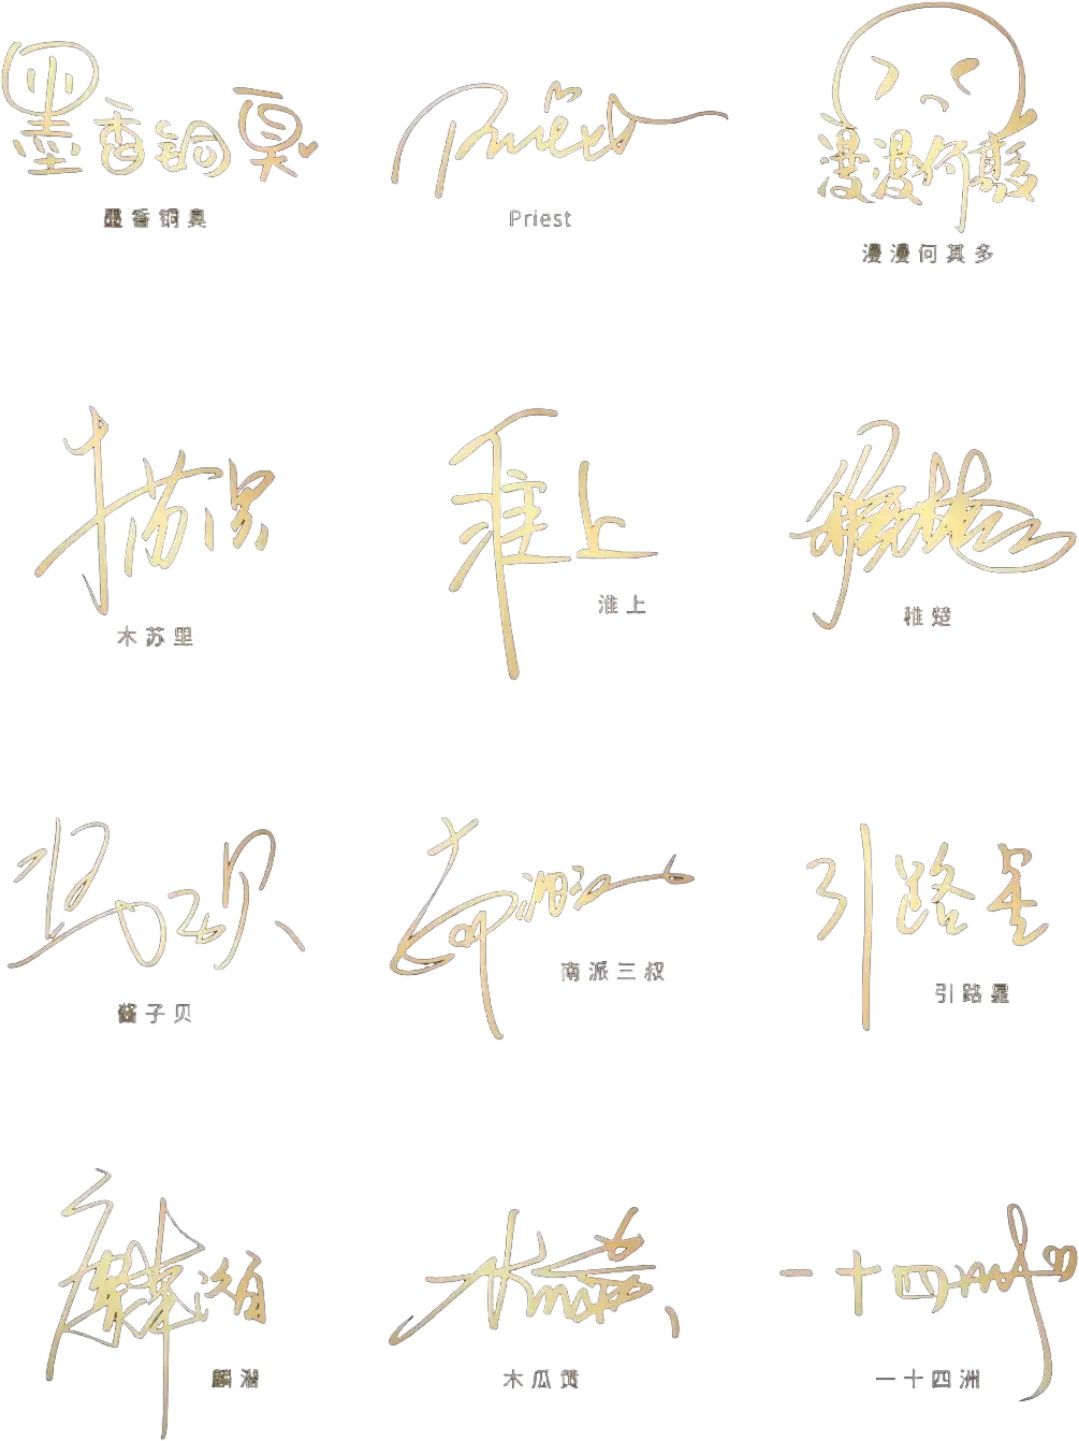 墨香铜臭
墨香铜臭
Priest
Priest
漫漫何其多
漫漫何其多
木苏里
木苏里
淮上
淮上
稚楚
稚楚
酱子贝
酱子贝
南派三叔
南派三叔
引路星
引路星
麟潜
麟潜
木瓜黄
木瓜黄
一十四洲
一十四洲